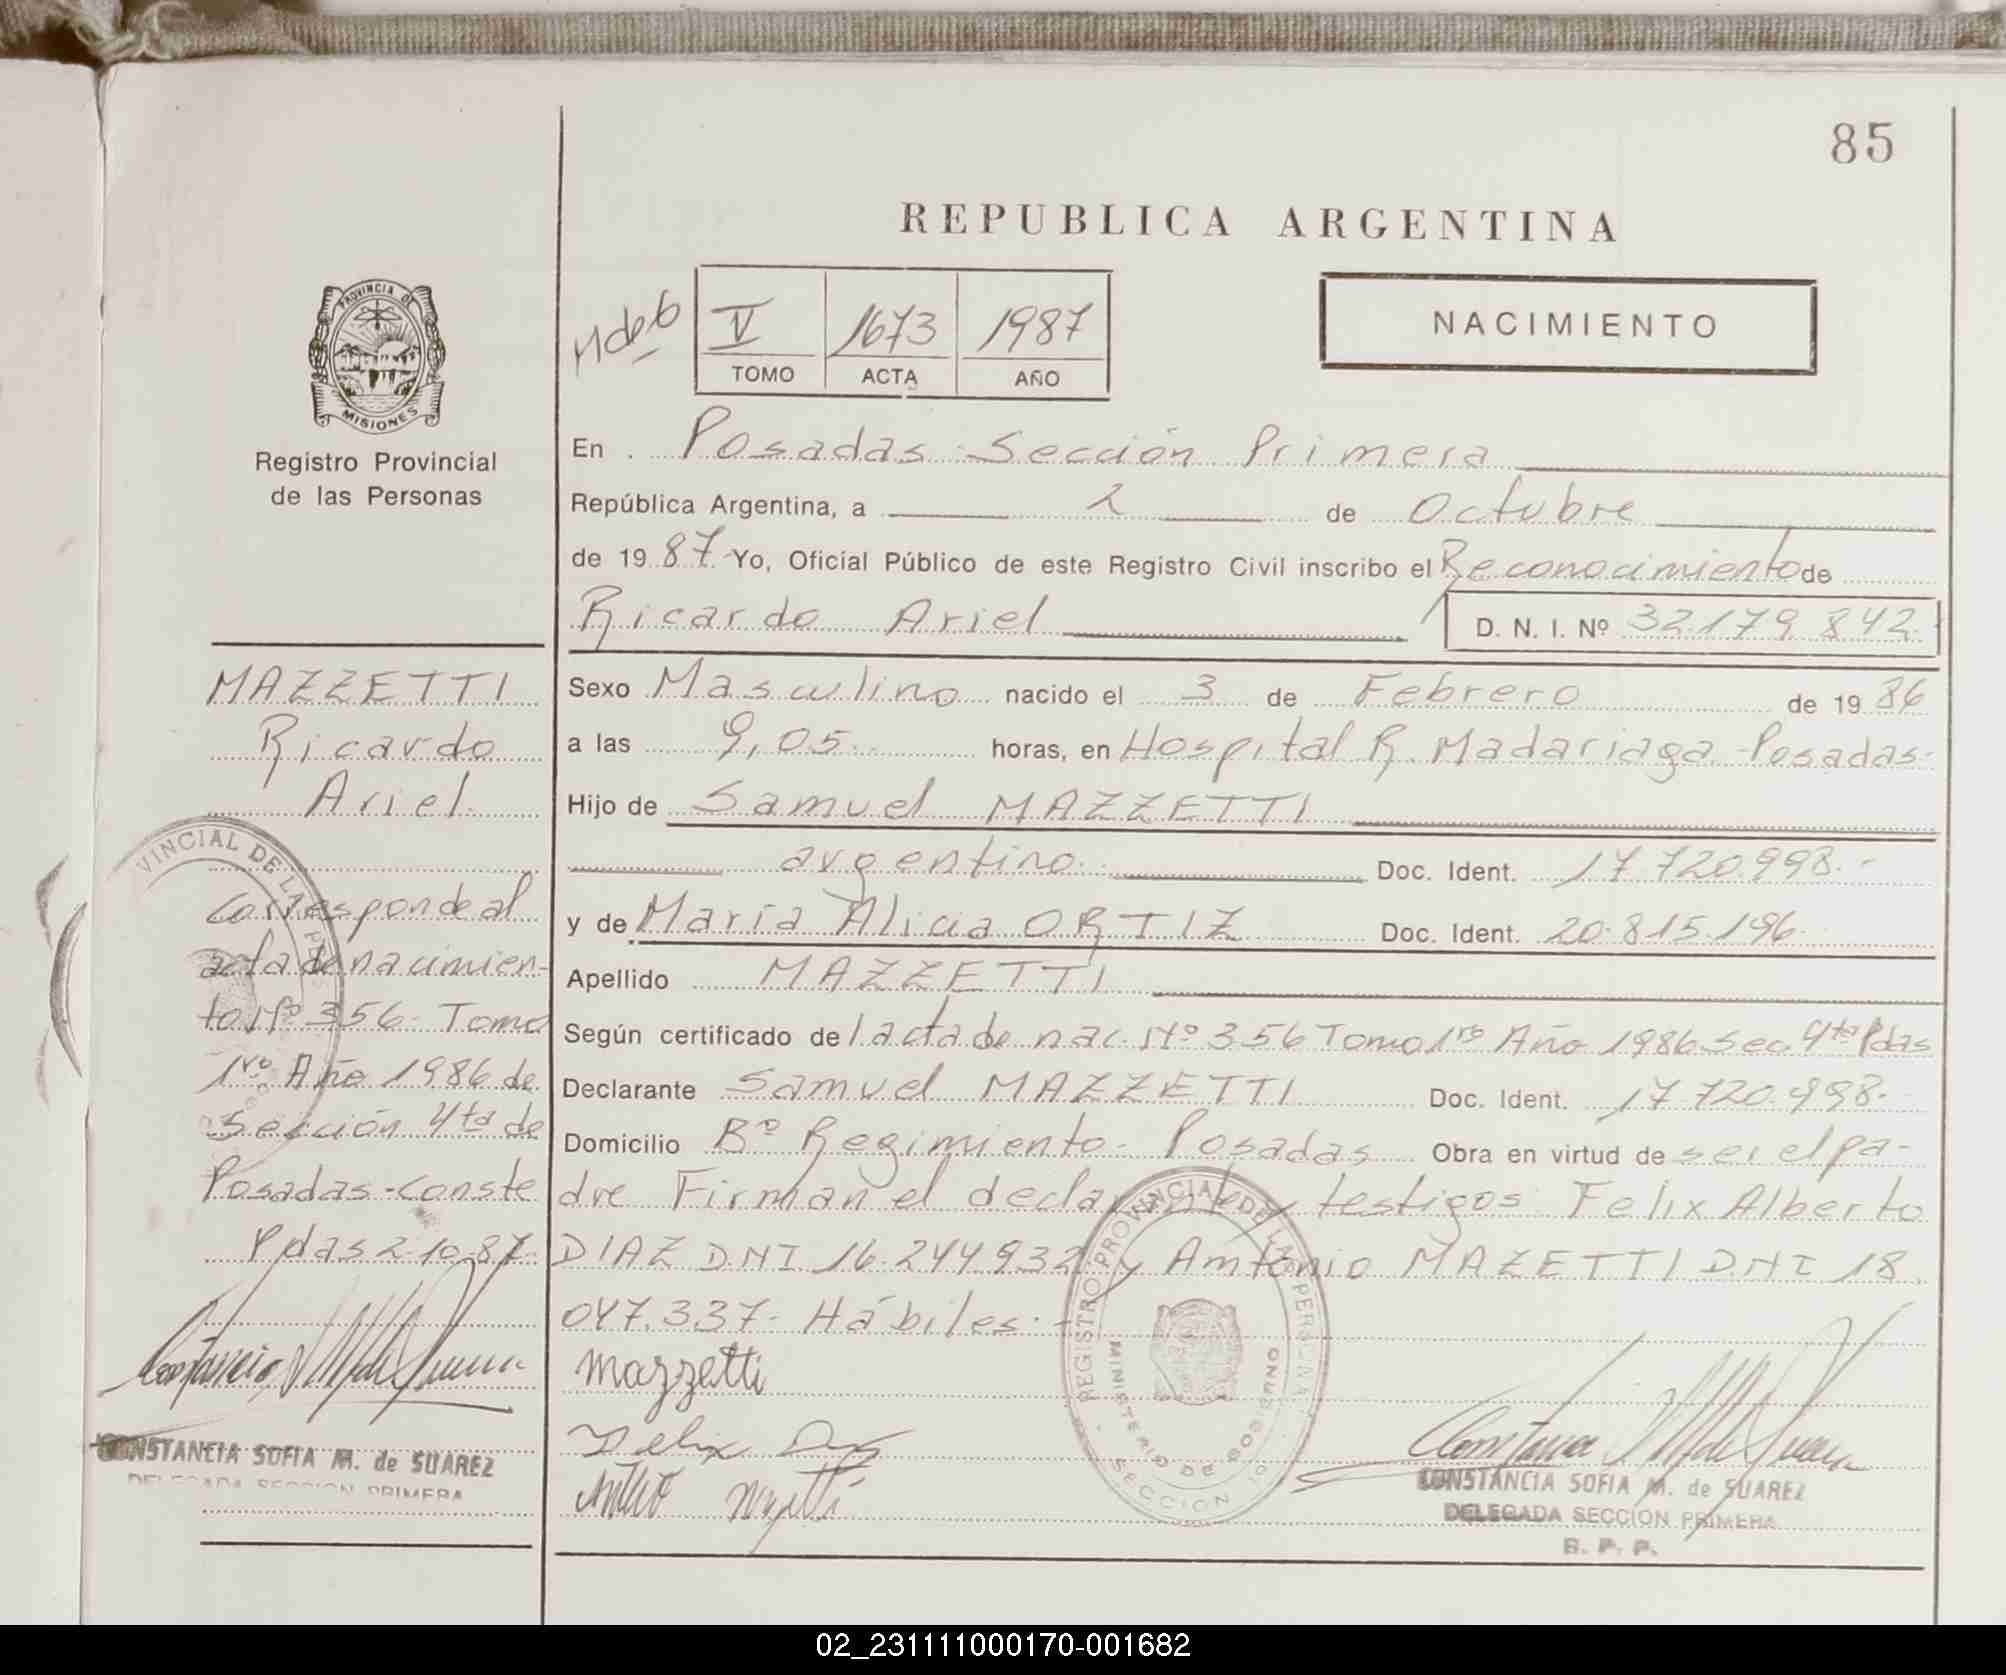 85
REPUBLICA ARGENTINA
V 1673 1987
TOMO ACTA AÑO
NACIMIENTO
PROVINCIA DE
MISIONES
Registro Provincial
de las Personas
En Posadas Sección Primera
República Argentina, a 2 de Octubre
de 1987 Yo, Oficial Público de este Registro Civil inscribo el Reconocimiento de
Ricardo Ariel D. N. I. Nº 32.179.842.
Sexo Masculino nacido el 3 de Febrero de 1986
a las 9,05 horas, en Hospital R. Madariaga - Posadas-
Hijo de Samuel MAZZETTI
argentino. Doc. Ident. 17.720.998.-
y de María Alicia ORTIZ Doc. Ident. 20.815.196.
Apellido MAZZETTI
Según certificado de l acta de nac. Nº 356 Tomo 1ro Año 1986 Sec. 4ta Pdas
Declarante Samuel MAZZETTI Doc. Ident. 17.720.998.
Domicilio Bº Regimiento - Posadas Obra en virtud de ser el pa-
dre Firman el declarante y testigos Felix Alberto
DIAZ DNI 16.244.932 y Antonio MAZETTI DNI 18.
047.337- Hábiles.-
MAZZETTI
Ricardo
Ariel
Corresponde al
acta de nacimien-
to Nº 356- Tomo
1ro Año 1986 de
Sección 4ta de
Posadas-conste
Pdas 2-10-87-
CONSTANCIA SOFIA M. de SUAREZ
DELEGADA SECCION PRIMERA
Mazzetti
Felix
REGISTRO PROVINCIAL DE LAS PERSONAS
MINISTERIO DE GOBIERNO
SECCION 1
CONSTANCIA SOFIA M. de SUAREZ
DELEGADA SECCION PRIMERA
R. P. P.
02_231111000170-001682